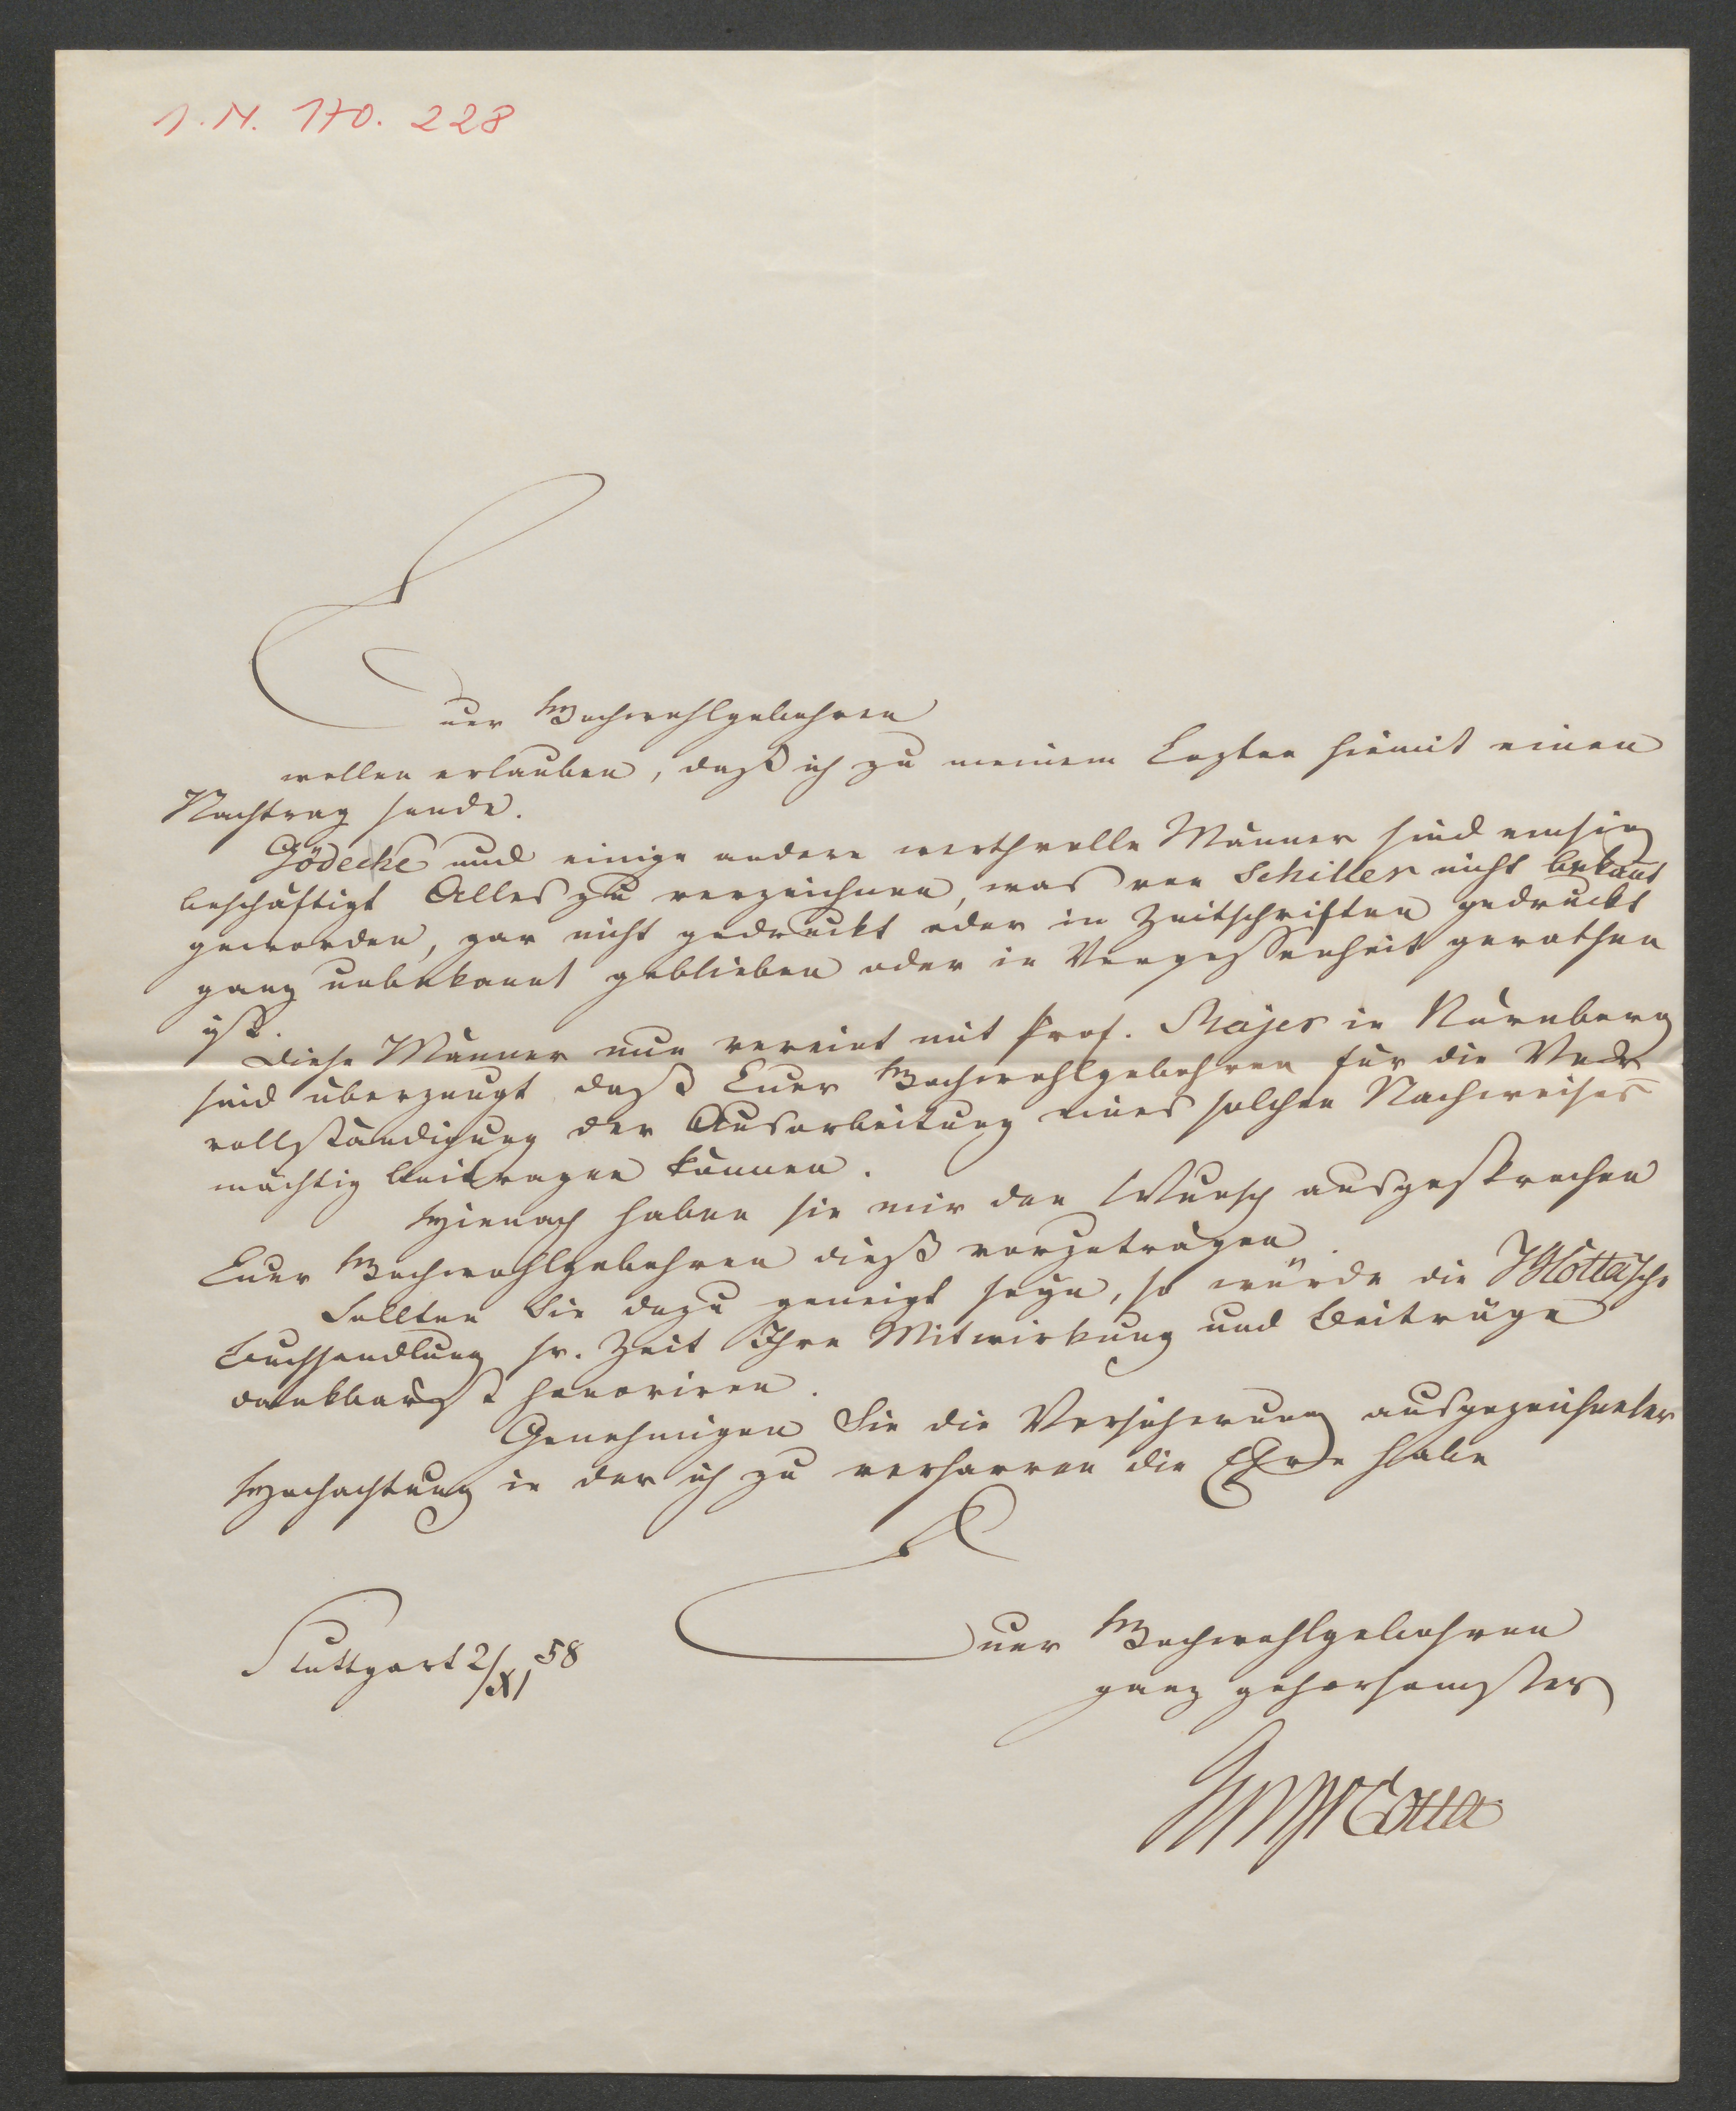 I. N. 170. 228
Euer Hochwohlgebohren
wollen erlauben, daß ich zu meinem Lezten hiemit einen
Nachtrag sende.
Gödecke und einige andere werthvolle Männer sind emsig
beschäftigt Alles zu verzeichnen, was von Schiller nicht bekañt
geworden, gar nicht gedruckt oder in Zeitschriften gedruckt
ganz unbekannt geblieben oder in Vergessenheit gerathen
ist.
Diese Männer nun vereint mit Prof. Majer in Nürnberg
sind überzeugt daß Euer Hochwohlgebohren für die
vollständigung der Ausarbeitung eines solchen Nachweises
mächtig beitragen können.
Hienach haben sie mir den Wunsch ausgesprochen
Euer Hochwohlgebohren dieß vorzutragen.
Sollten Sie dazu geneigt seyn, so würde die JGCottasche
Buchhandlung sr. Zeit Ihre Mitwirkung und Beiträge
dankbarst honoriren.
Genehmigen Sie die Versicherung ausgezeichneter
Hochachtung in der ich zu verharren die Ehre habe
Euer Hochwohlgebohren
ganz gehorsamster
Stuttgart 2/XI 58
Cotta